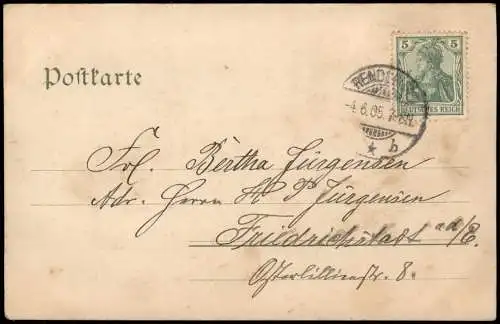 5 5
DEUTSCHES REICH
Postkarte
RENDSBURG
4.6.05. 7-8N.
* b
Frl. Bertha Jürgensen
Adr. Herrn H P Jürgensen
Friedrichstadt ad/E.
Osterlilienstr. 8.